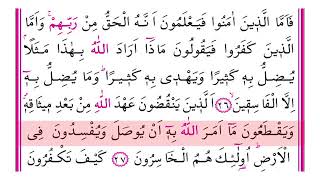 فَاَمَّا الَّذِيْنَ اٰمَنُوْا فَيَعْلَمُوْنَ اَنَّهُ الْحَقُّ مِنْ رَّبِّهِمْ ۚ وَاَمَّا
الَّذِيْنَ كَفَرُوْا فَيَقُوْلُوْنَ مَاذَآ اَرَادَ اللّٰهُ بِهٰذَا مَثَلًا ۘ
يُضِلُّ بِهٖ كَثِيْرًا وَّيَهْدِيْ بِهٖ كَثِيْرًا ؕ وَمَا يُضِلُّ بِهٖٓ
اِلَّا الْفَاسِقِيْنَ ﴿۲۶﴾ الَّذِيْنَ يَنْقُضُوْنَ عَهْدَ اللّٰهِ مِنْ بَعْدِ مِيْثَاقِهٖ
وَيَقْطَعُوْنَ مَآ اَمَرَ اللّٰهُ بِهٖٓ اَنْ يُّوْصَلَ وَيُفْسِدُوْنَ فِى
الْاَرْضِ ؕ اُولٰٓئِكَ هُمُ الْخَاسِرُوْنَ ﴿۲۷﴾ كَيْفَ تَكْفُرُوْنَ